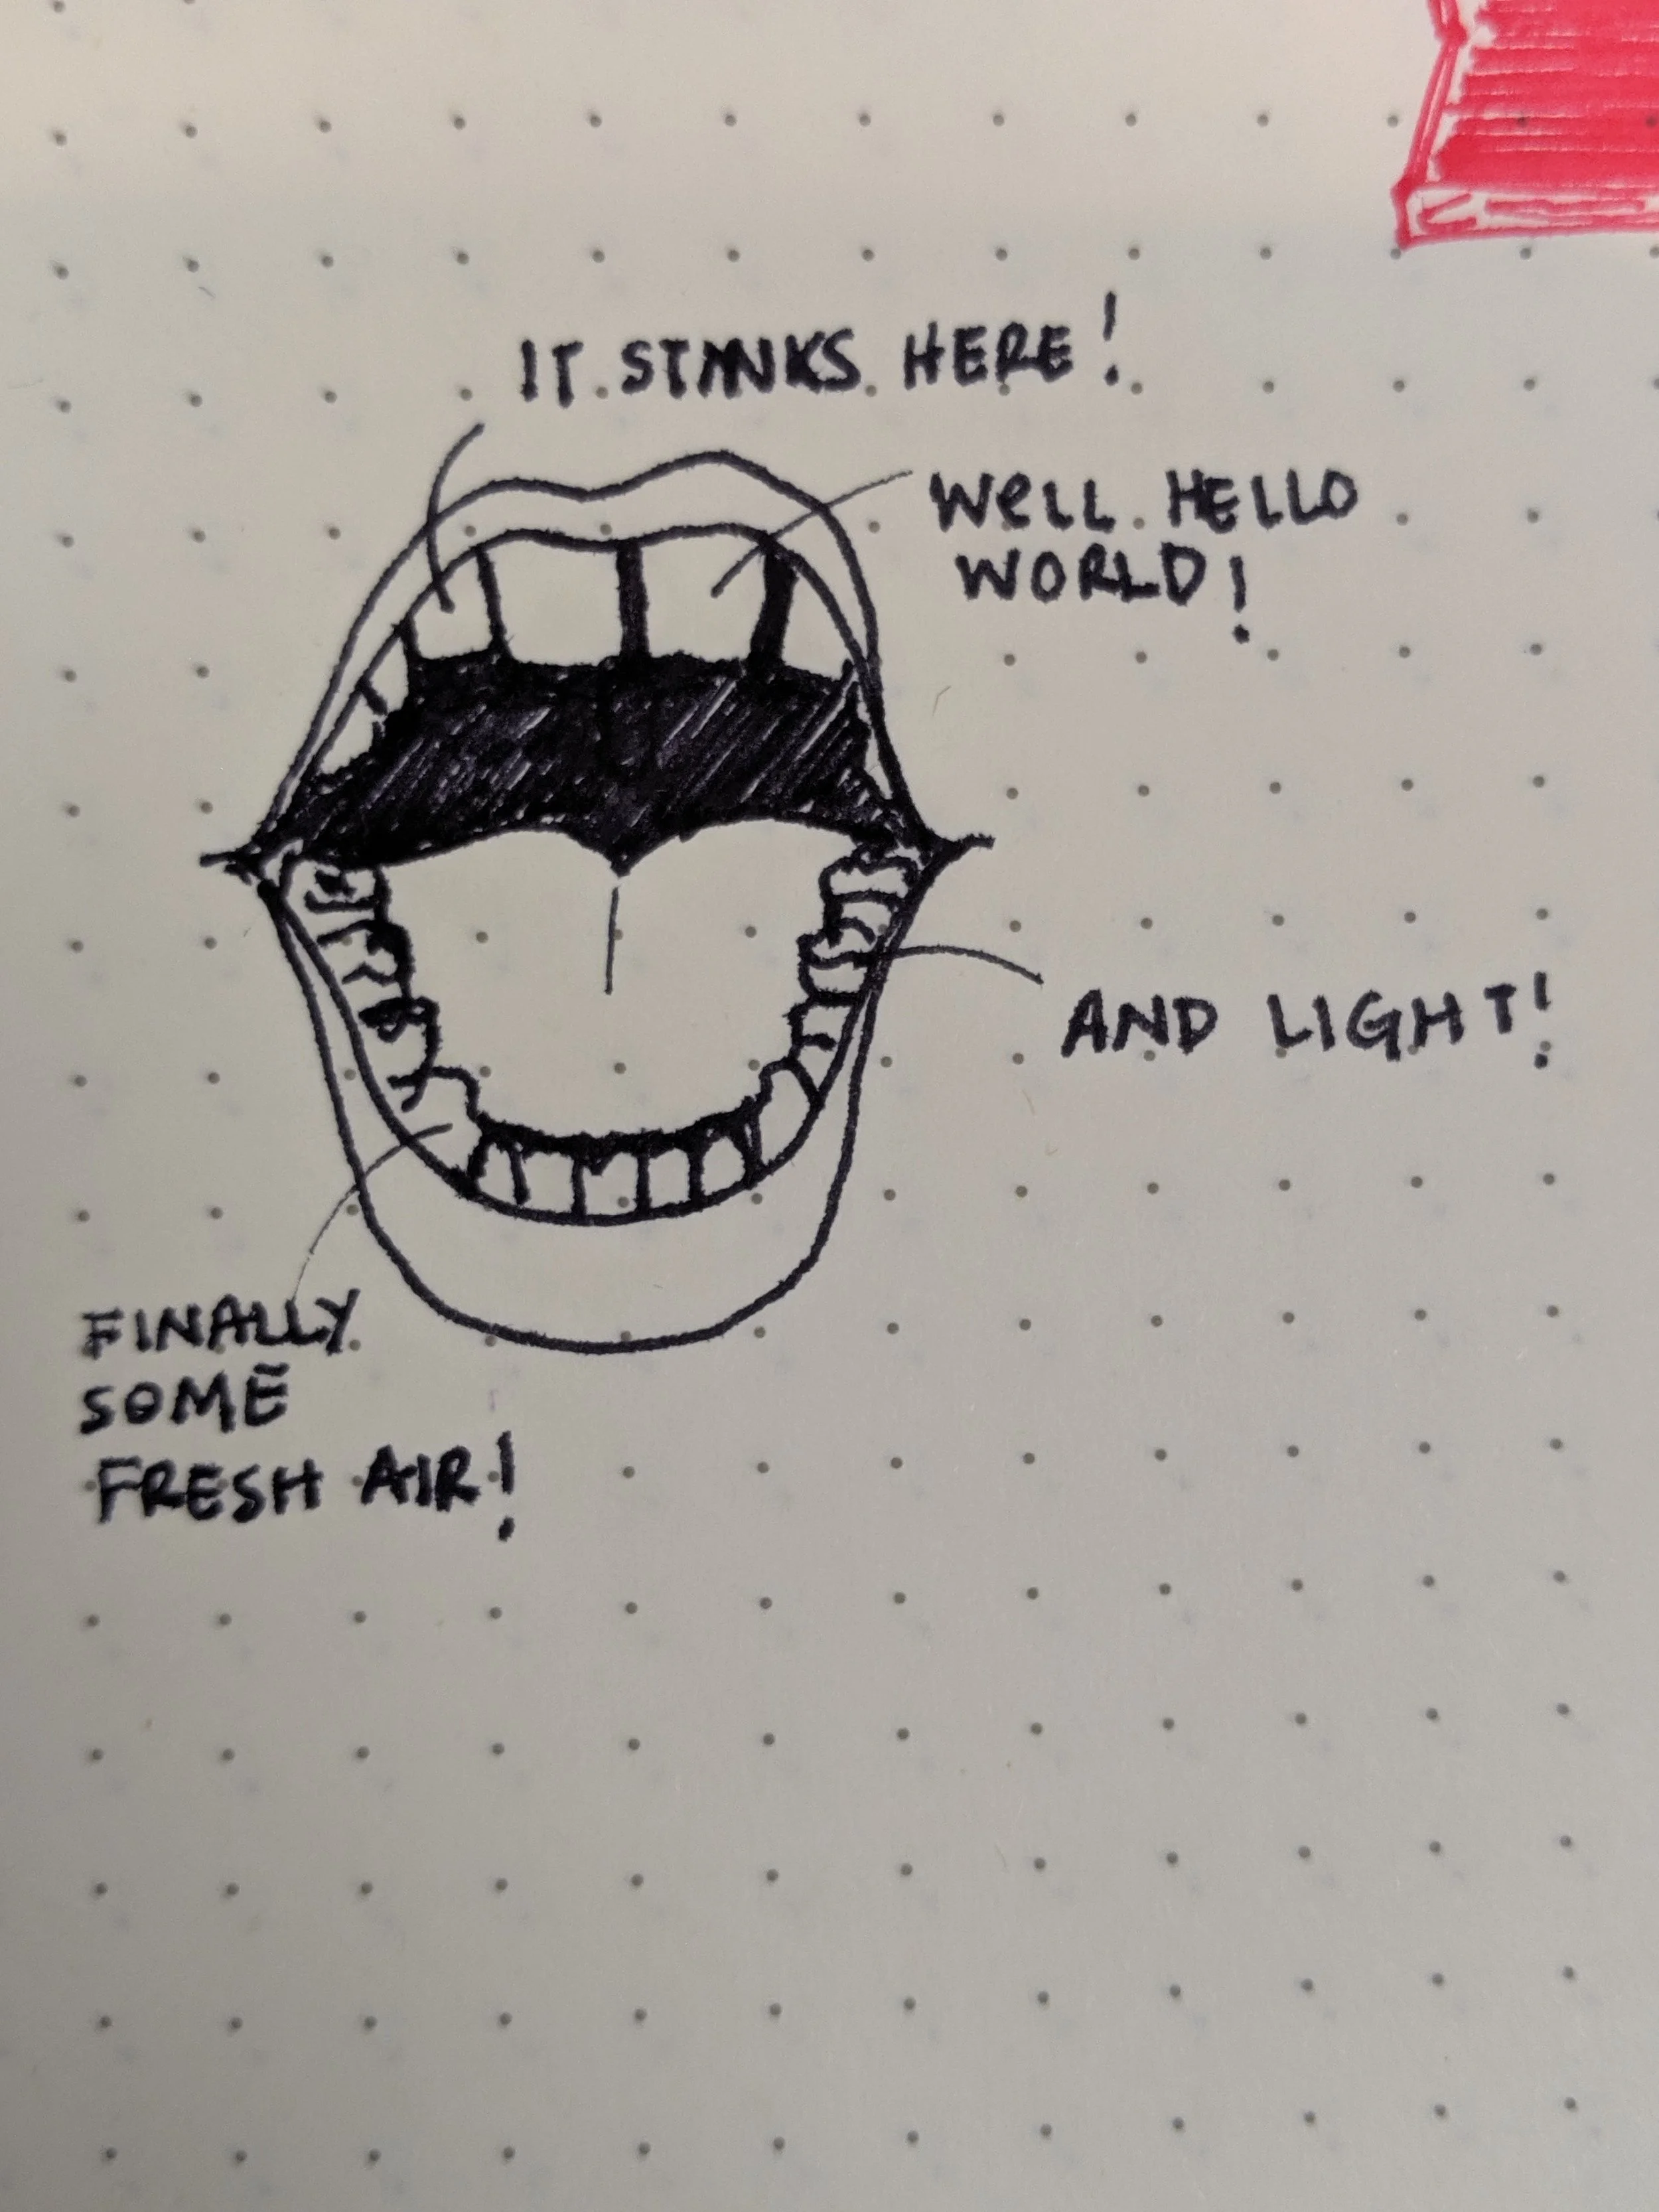 IT STINKS HERE!
WELL HELLO
WORLD!
AND LIGHT!
FINALLY
SOME
FRESH AIR!